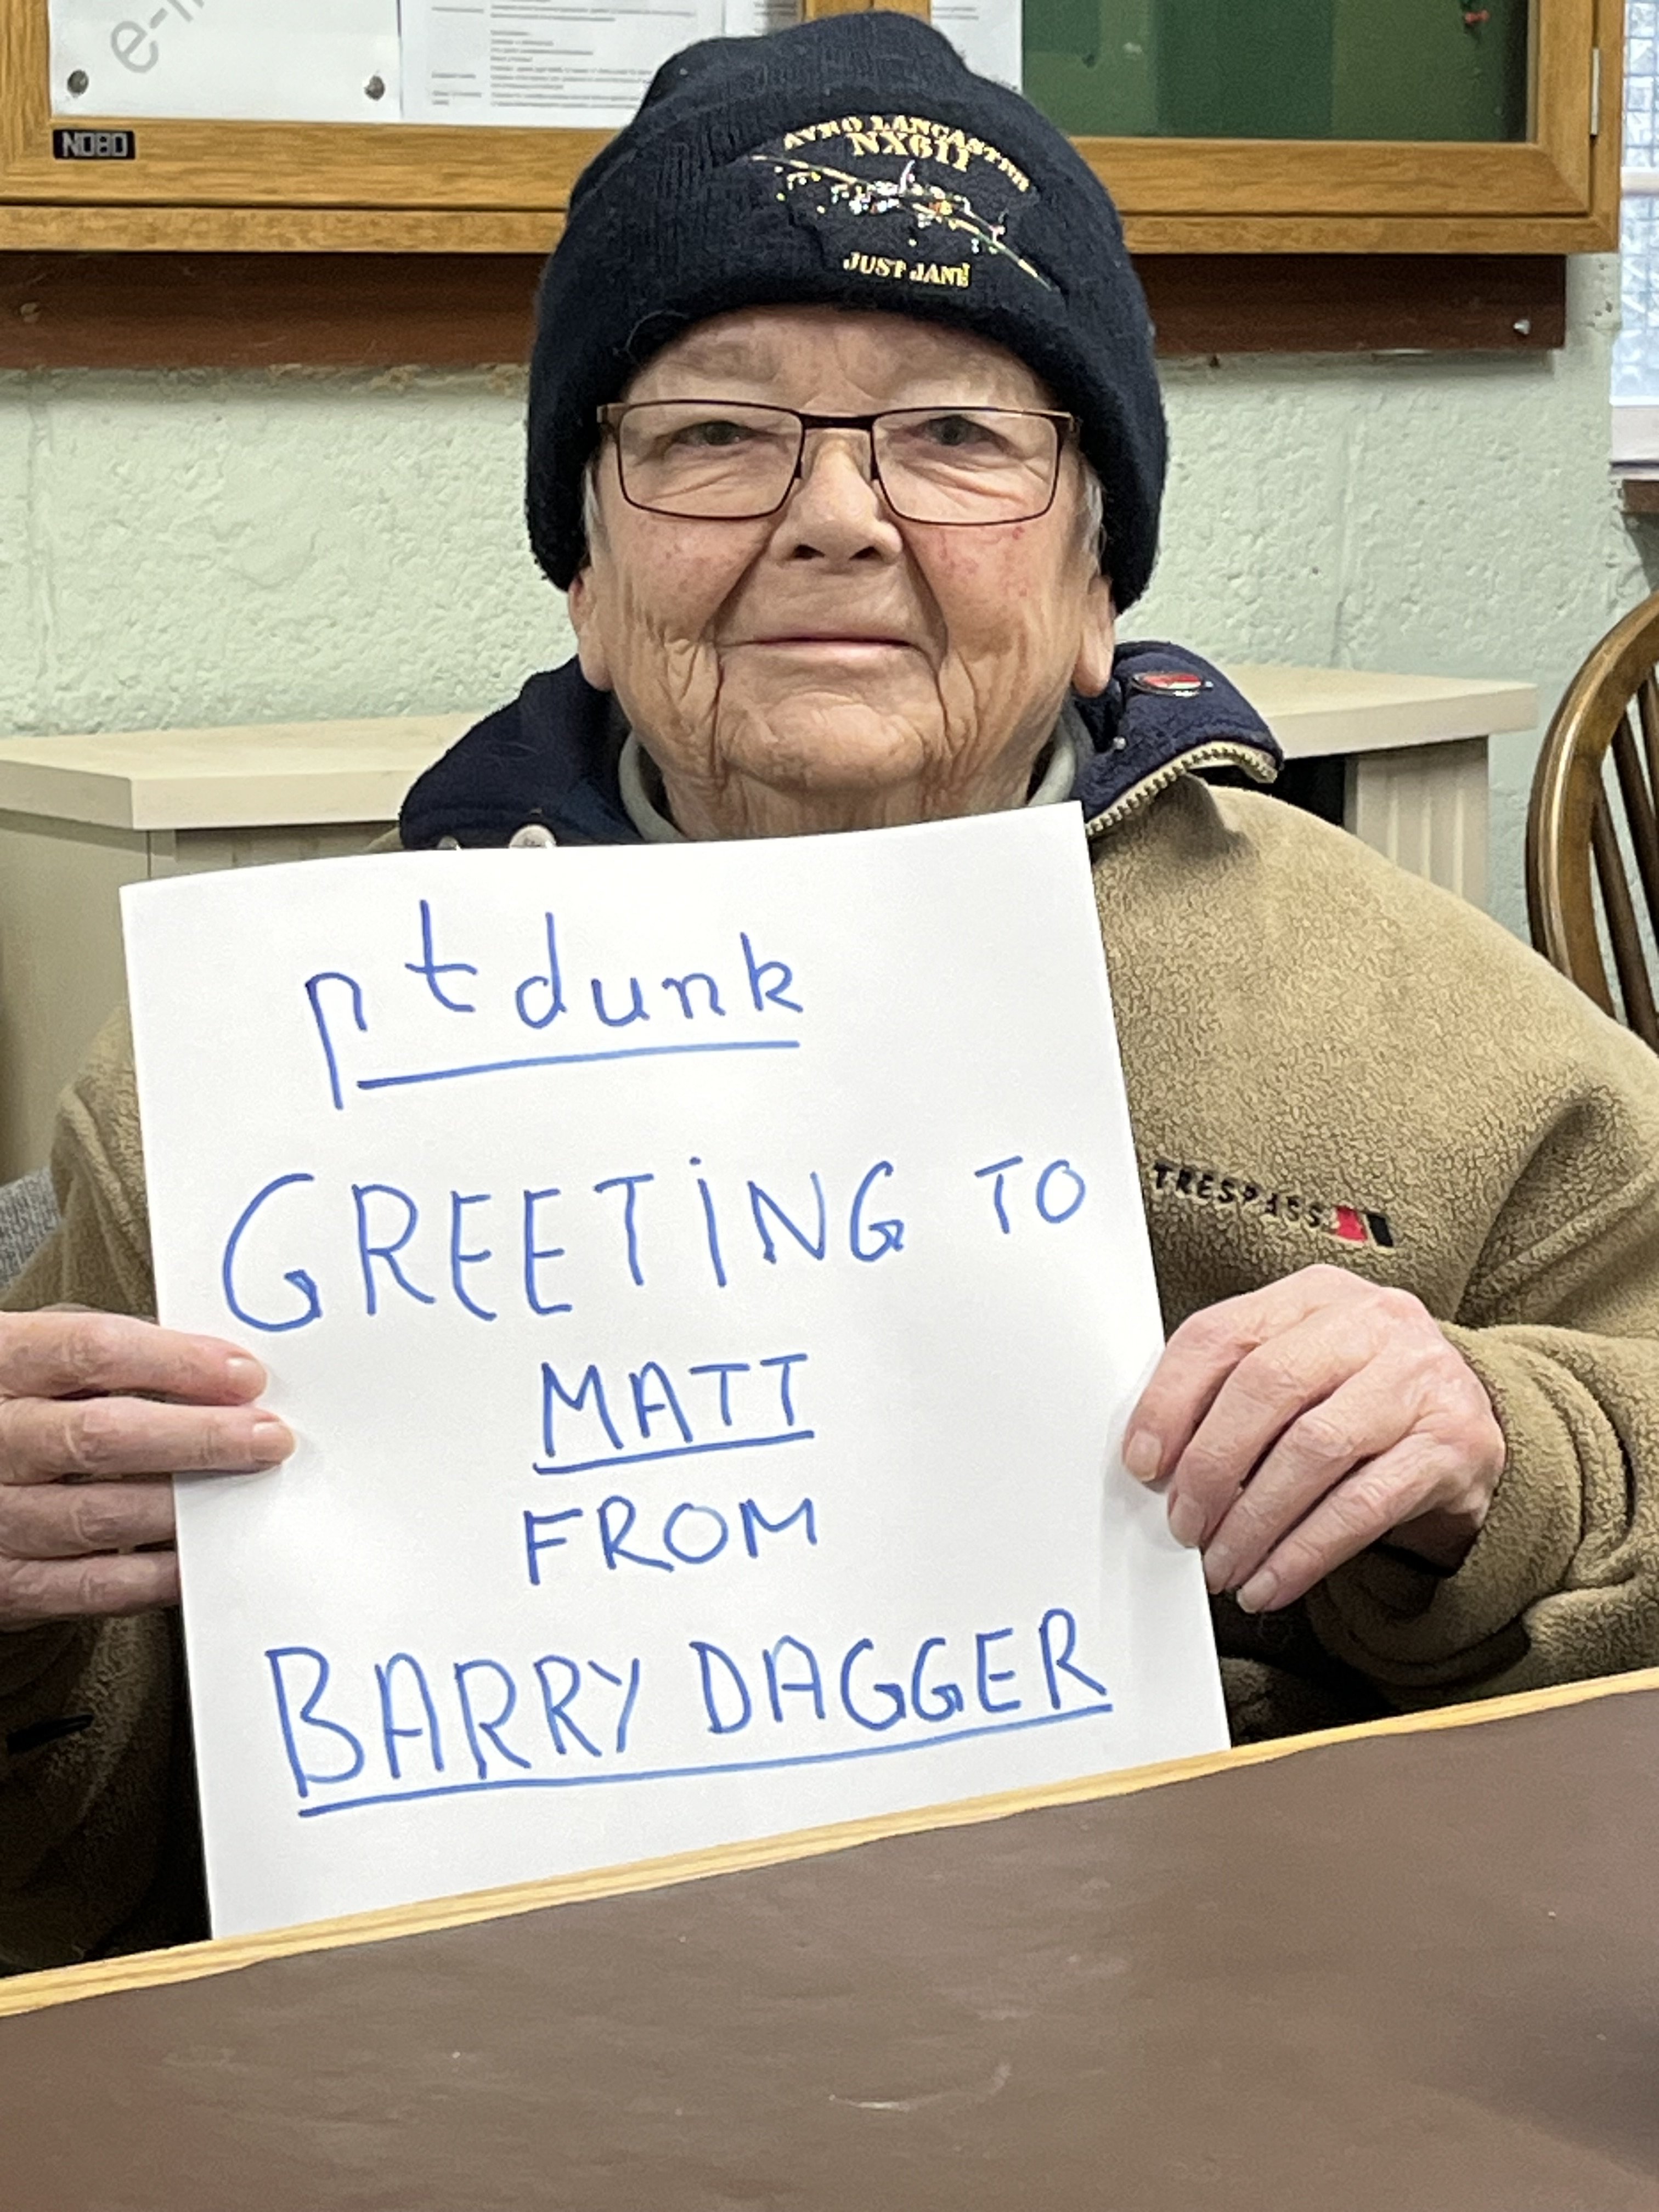 e-
NOBO
AVRO LANCASTER
NX611
JUST JANE
ptdunk
GREETING TO
MATT
FROM
BARRY DAGGER
TRESPASS